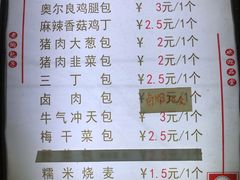 奥尔良鸡腿包 ¥ 3元/1个
麻辣香菇鸡丁 ¥2.5元/1个
猪肉大葱包 ¥ 2元/1个
猪肉韭菜包 ¥ 2元/1个
三丁包 ¥2.5元/1个
卤肉包 ¥
牛气冲天包 ¥ 3元/1个
梅干菜包 ¥2.5元/1个
糯米烧麦 ¥1.5元/1个